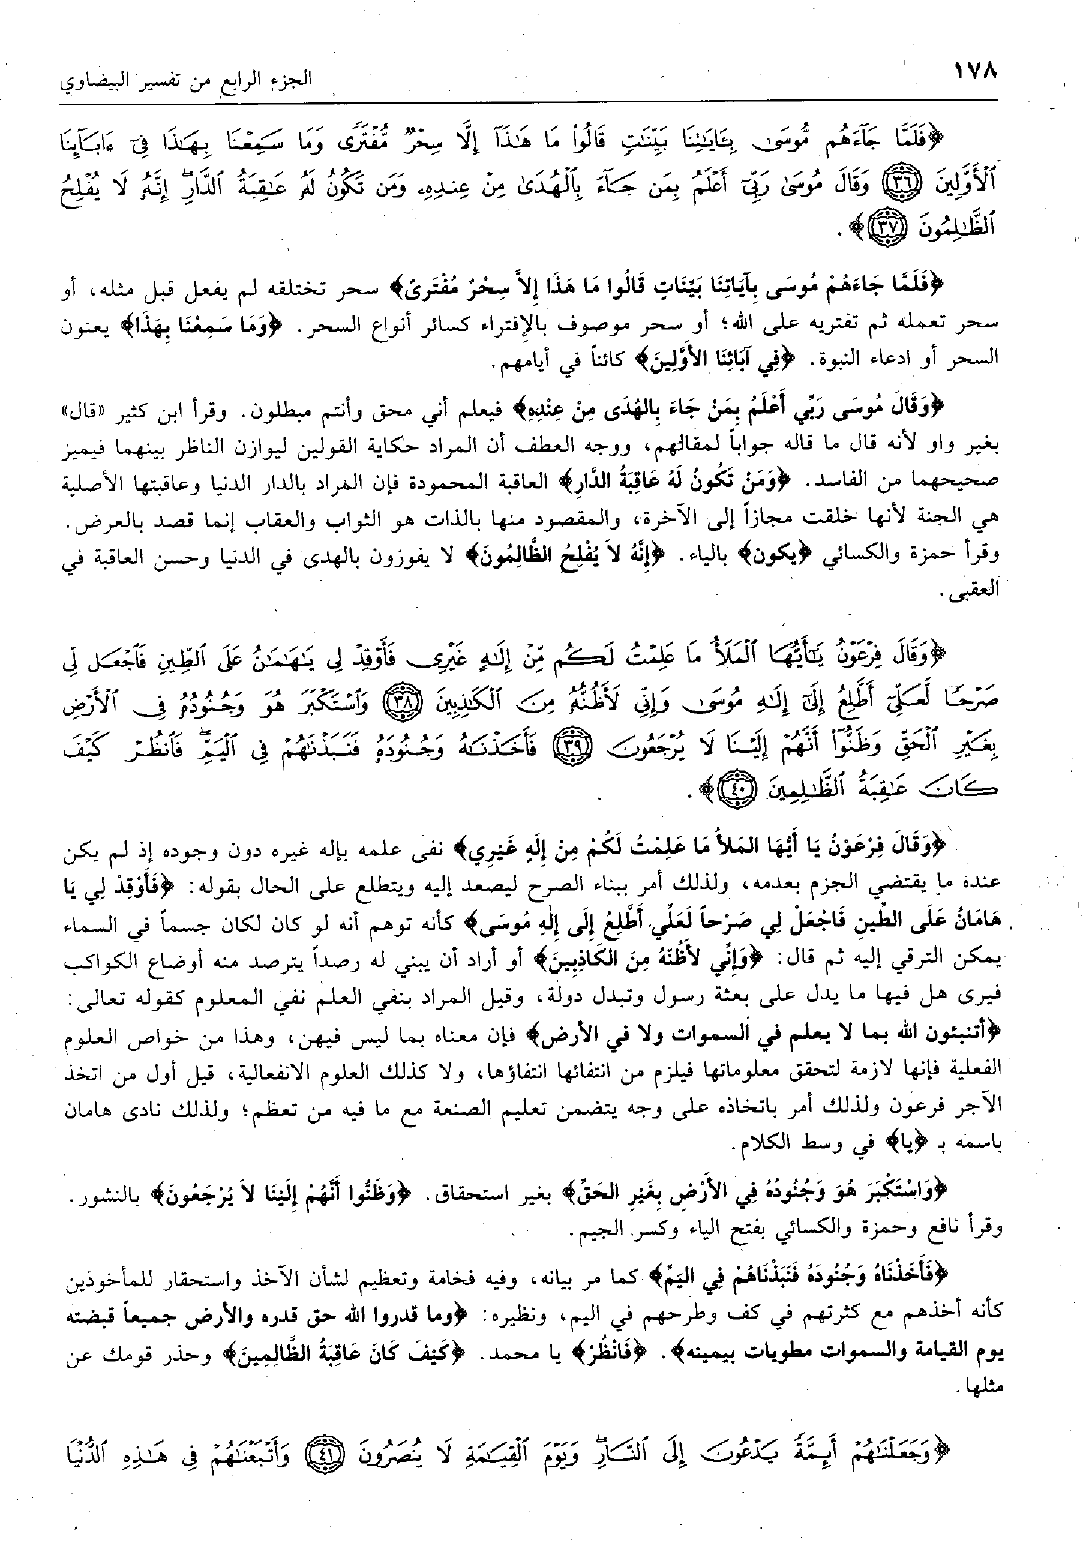 ١٧٨
الجزء الرابع من تفسير البيضاوي
﴿فَلَمَّا جَآءَهُم مُّوسَىٰ بِـَٔايَـٰتِنَا بَيِّنَـٰتٍ قَالُوا۟ مَا هَـٰذَآ إِلَّا سِحْرٌ مُّفْتَرًى وَمَا سَمِعْنَا بِهَـٰذَا فِىٓ ءَابَآئِنَا
ٱلْأَوَّلِينَ ٣٦ وَقَالَ مُوسَىٰ رَبِّىٓ أَعْلَمُ بِمَن جَآءَ بِٱلْهُدَىٰ مِنْ عِندِهِۦ وَمَن تَكُونُ لَهُۥ عَـٰقِبَةُ ٱلدَّارِ ۖ إِنَّهُۥ لَا يُفْلِحُ
ٱلظَّـٰلِمُونَ ٣٧﴾.
﴿فَلَمَّا جَاءَهُمْ مُوسَى بِآيَاتِنَا بَيِّنَاتٍ قَالُوا مَا هَذَا إِلاَّ سِحْرٌ مُفْتَرىً﴾ سحر تختلقه لم يفعل قبل مثله، أو
سحر تعمله ثم تفتريه على الله؛ أو سحر موصوف بالإفتراء كسائر أنواع السحر. ﴿وَمَا سَمِعْنَا بِهَذَا﴾ يعنون
السحر أو ادعاء النبوة. ﴿فِي آبَائِنَا الأَوَّلِينَ﴾ كائناً في أيامهم.
﴿وَقَالَ مُوسَى رَبِّي أَعْلَمُ بِمَنْ جَاءَ بِالهُدَى مِنْ عِنْدِهِ﴾ فيعلم أني محق وأنتم مبطلون. وقرأ ابن كثير «قال»
بغير واو لأنه قال ما قاله جواباً لمقالهم، ووجه العطف أن المراد حكاية القولين ليوازن الناظر بينهما فيميز
صحيحهما من الفاسد. ﴿وَمَنْ تَكُونُ لَهُ عَاقِبَةُ الدَّارِ﴾ العاقبة المحمودة فإن المراد بالدار الدنيا وعاقبتها الأصلية
هي الجنة لأنها خلقت مجازاً إلى الآخرة، والمقصود منها بالذات هو الثواب والعقاب إنما قصد بالعرض.
وقرأ حمزة والكسائي ﴿يكون﴾ بالياء. ﴿إِنَّهُ لاَ يُفْلِحُ الظَّالِمُونَ﴾ لا يفوزون بالهدى في الدنيا وحسن العاقبة في
العقبى.
﴿وَقَالَ فِرْعَوْنُ يَـٰٓأَيُّهَا ٱلْمَلَأُ مَا عَلِمْتُ لَكُم مِّنْ إِلَـٰهٍ غَيْرِى فَأَوْقِدْ لِى يَـٰهَـٰمَـٰنُ عَلَى ٱلطِّينِ فَٱجْعَل لِّى
صَرْحًا لَّعَلِّىٓ أَطَّلِعُ إِلَىٰٓ إِلَـٰهِ مُوسَىٰ وَإِنِّى لَأَظُنُّهُۥ مِنَ ٱلْكَـٰذِبِينَ ٣٨ وَٱسْتَكْبَرَ هُوَ وَجُنُودُهُۥ فِى ٱلْأَرْضِ
بِغَيْرِ ٱلْحَقِّ وَظَنُّوٓا۟ أَنَّهُمْ إِلَيْنَا لَا يُرْجَعُونَ ٣٩ فَأَخَذْنَـٰهُ وَجُنُودَهُۥ فَنَبَذْنَـٰهُمْ فِى ٱلْيَمِّ ۖ فَٱنظُرْ كَيْفَ
كَانَ عَـٰقِبَةُ ٱلظَّـٰلِمِينَ ٤٠﴾.
﴿وَقَالَ فِرْعَوْنُ يَا أَيُّهَا المَلأُ مَا عَلِمْتُ لَكُمْ مِنْ إِلَهٍ غَيْرِي﴾ نفى علمه بإله غيره دون وجوده إذ لم يكن
عنده ما يقتضي الجزم بعدمه، ولذلك أمر ببناء الصرح ليصعد إليه ويتطلع على الحال بقوله: ﴿فَأَوْقِدْ لِي يَا
هَامَانُ عَلَى الطِّينِ فَاجْعَلْ لِي صَرْحاً لَعَلِّي أَطَّلِعُ إِلَى إِلَهِ مُوسَى﴾ كأنه توهم أنه لو كان لكان جسماً في السماء
يمكن الترقي إليه ثم قال: ﴿وَإِنِّي لأَظُنَّهُ مِنَ الكَاذِبِينَ﴾ أو أراد أن يبني له رصداً يترصد منه أوضاع الكواكب
فيرى هل فيها ما يدل على بعثة رسول وتبدل دولة، وقيل المراد بنفي العلم نفي المعلوم كقوله تعالى:
﴿أتنبئون الله بما لا يعلم في السموات ولا في الأرض﴾ فإن معناه بما ليس فيهن، وهذا من خواص العلوم
الفعلية فإنها لازمة لتحقق معلوماتها فيلزم من انتفائها انتفاؤها، ولا كذلك العلوم الانفعالية، قيل أول من اتخذ
الآجر فرعون ولذلك أمر باتخاذه على وجه يتضمن تعليم الصنعة مع ما فيه من تعظم؛ ولذلك نادى هامان
باسمه بـ ﴿يا﴾ في وسط الكلام.
﴿وَاسْتَكْبَرَ هُوَ وَجُنُودُهُ فِي الأَرْضِ بِغَيْرِ الحَقِّ﴾ بغير استحقاق. ﴿وَظَنُّوا أَنَّهُمْ إِلَيْنَا لاَ يُرْجَعُونَ﴾ بالنشور.
وقرأ نافع وحمزة والكسائي بفتح الياء وكسر الجيم.
﴿فَأَخَذْنَاهُ وَجُنُودَهُ فَنَبَذْنَاهُمْ فِي اليَمِّ﴾ كما مر بيانه، وفيه فخامة وتعظيم لشأن الآخذ واستحقار للمأخوذين
كأنه أخذهم مع كثرتهم في كف وطرحهم في اليم، ونظيره: ﴿وما قدروا الله حق قدره والأرض جميعاً قبضته
يوم القيامة والسموات مطويات بيمينه﴾. ﴿فَانْظُرْ﴾ يا محمد. ﴿كَيْفَ كَانَ عَاقِبَةُ الظَّالِمِينَ﴾ وحذر قومك عن
مثلها.
﴿وَجَعَلْنَـٰهُمْ أَئِمَّةً يَدْعُونَ إِلَى ٱلنَّارِ ۖ وَيَوْمَ ٱلْقِيَـٰمَةِ لَا يُنصَرُونَ ٤١ وَأَتْبَعْنَـٰهُمْ فِى هَـٰذِهِ ٱلدُّنْيَا